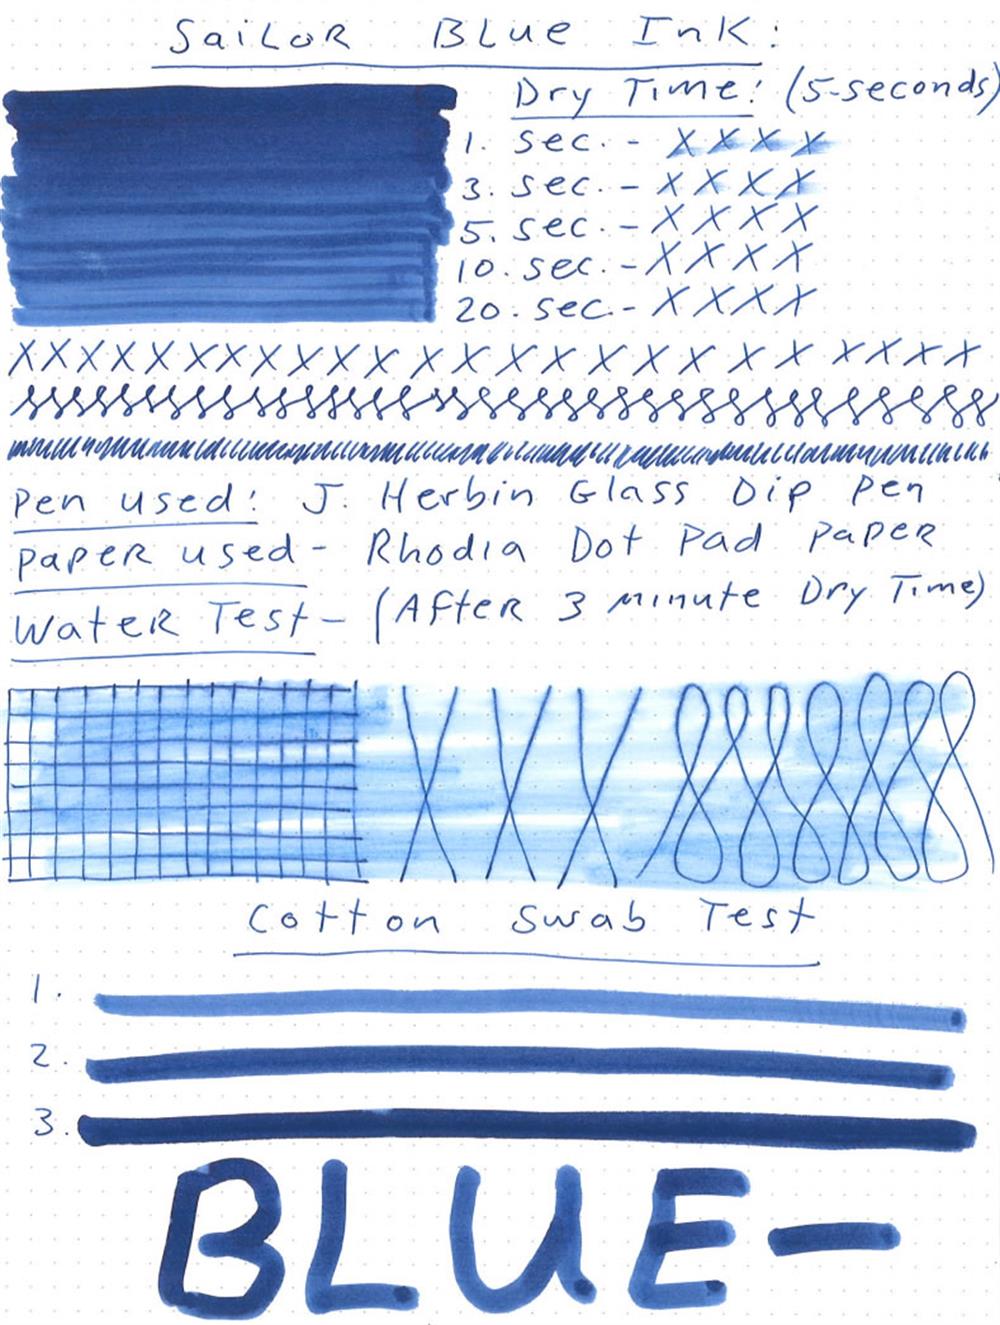 Sailor Blue Ink:
Dry Time: (5-seconds)
1. sec. - X X X X
3. sec. - X X X X
5. sec. - X X X X
10. sec. - X X X X
20. sec. - X X X X
X X X X X X X X X X X X X X X X X X X X X X X X X
Pen used: J. Herbin Glass Dip Pen
Paper used - Rhodia Dot Pad Paper
Water Test - (After 3 minute Dry Time)
Cotton Swab Test
1.
2.
3.
BLUE-